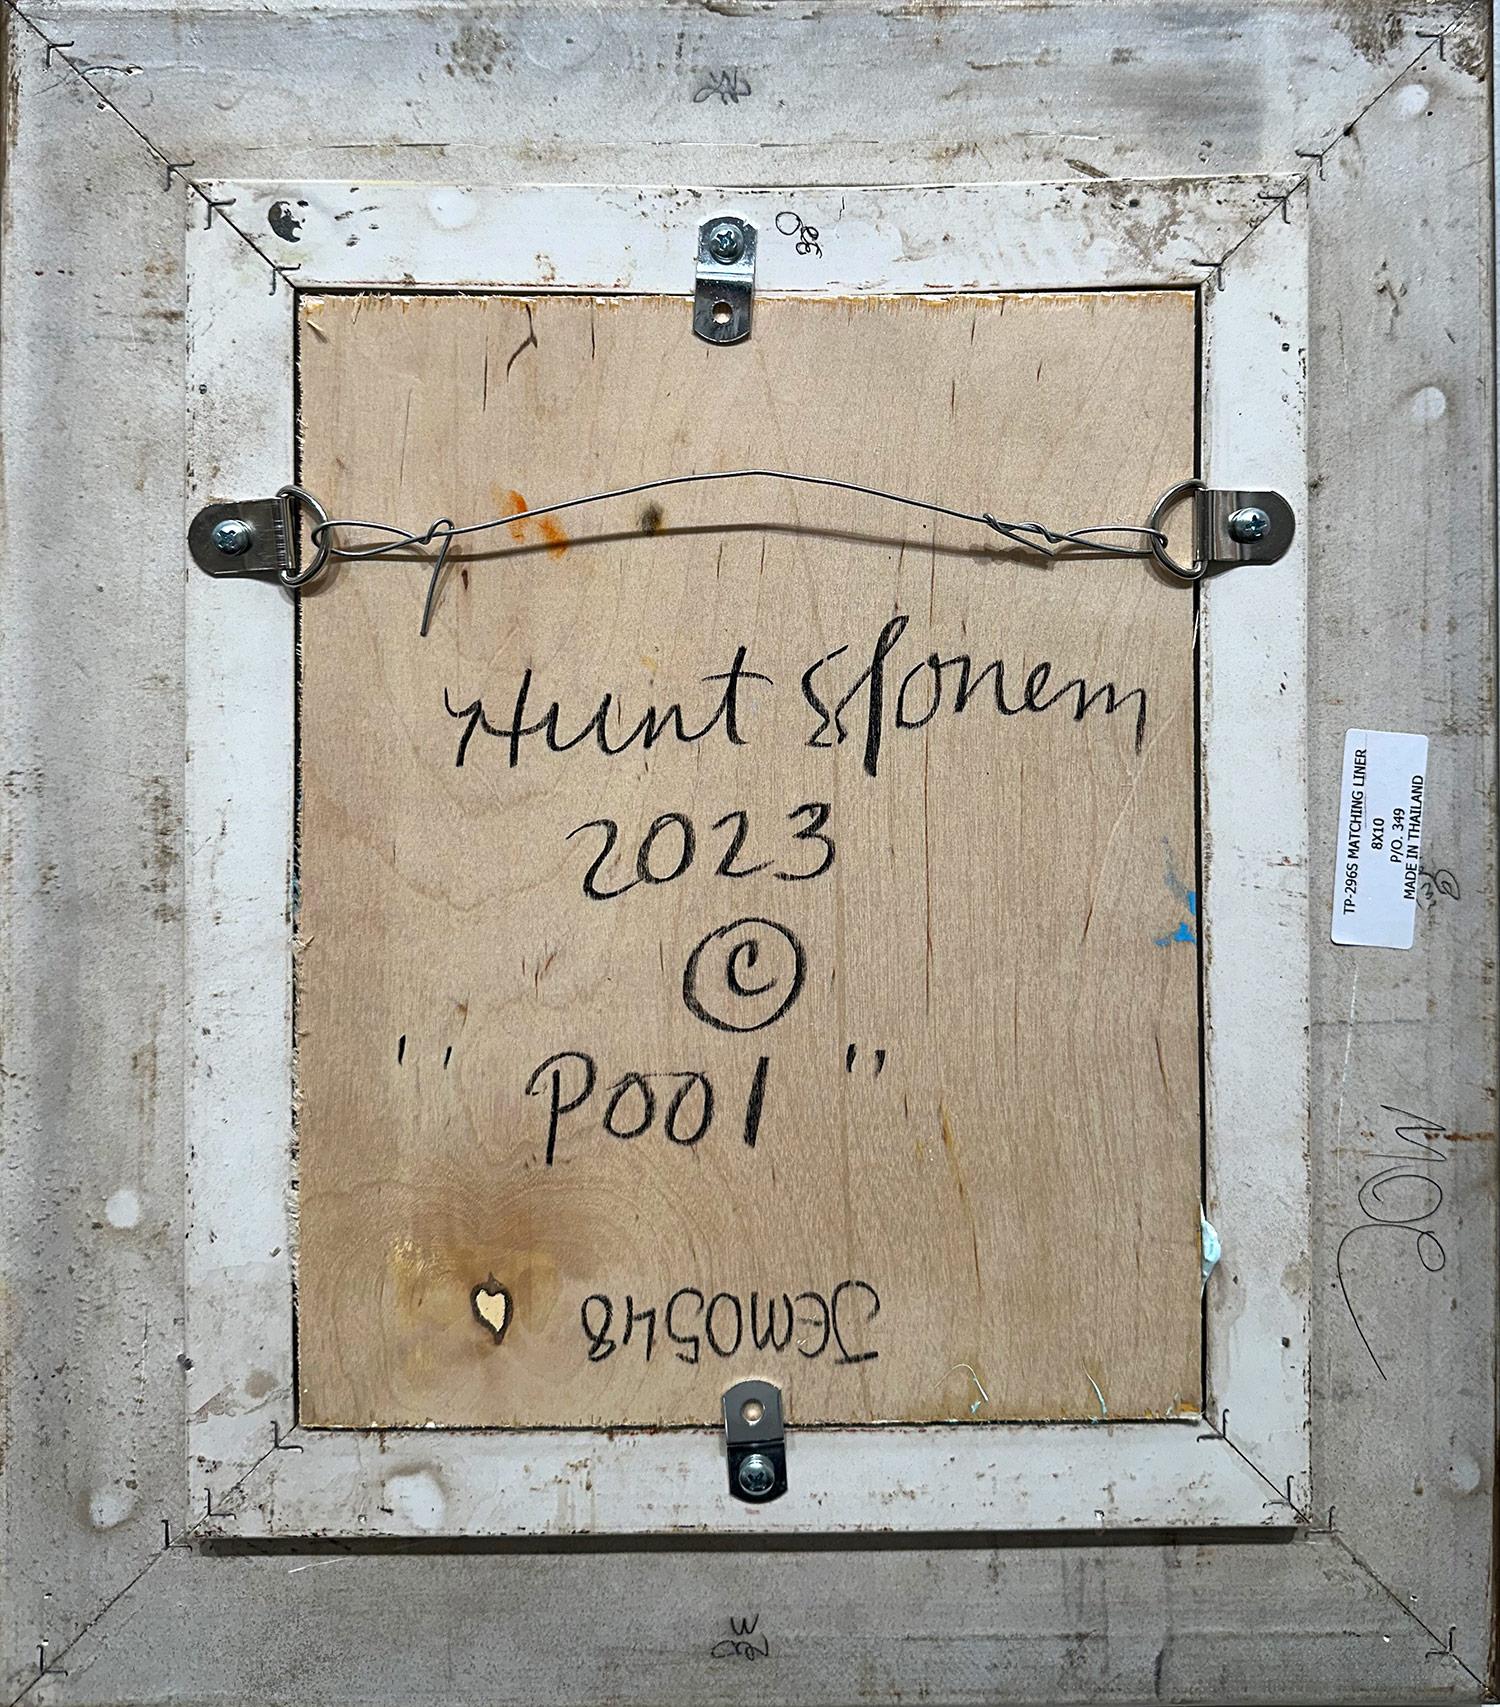 Hunt Slonem
2023
©
" Pool "
JEM0548
TP-296S MATCHING LINER
8X10
P/O. 349
MADE IN THAILAND